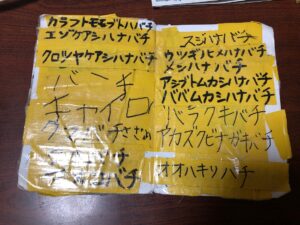 カラフトモモブトハバチ
エゾケアシハナバチ
クロツヤケアシハナバチ
バンチ
キャイロ
スジハナバチ
ウツギヒメハナバチ
メンハナバチ
アシブトムカシハナバチ
バベムカシハナバチ
バラクキバチ
ヤカズクビナガキバチ
オオハキリバチ